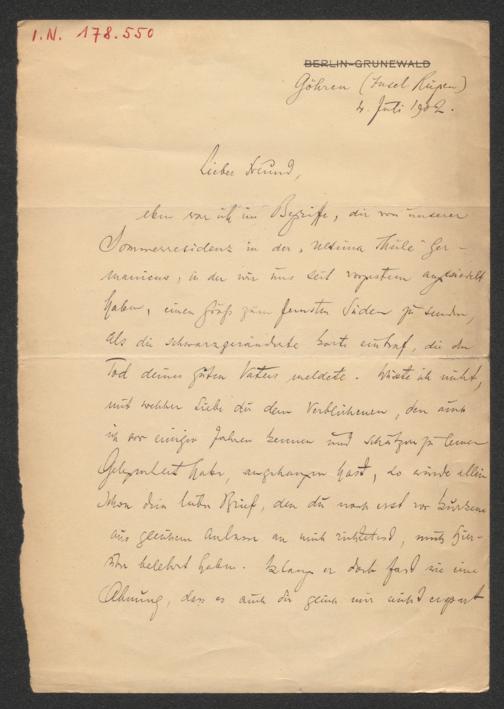 I.N. 178.550
BERLIN-GRUNEWALD
Göhren (Insel Rügen)
4. Juli 1902.
Lieber Freund,
eben war ich im Begriffe, dir von unserer
Sommerresidenz in der „Ultima Thule" Ger-
maniens, in der wir uns seit vorgestern angesiedelt
haben, einen Gruß zum fernsten Süden zu senden,
als die schwarzgeränderte Karte eintraf, die den
Tod deines guten Vaters meldete. Wüßte ich nicht,
mit welcher Liebe du dem Verblichenen, den auch
ich vor einigen Jahren kennen und schätzen zu lernen
Gelegenheit hatte, angehangen hast, so würde allein
schon dein lieber Brief, den du noch erst vor kurzem
aus gleichem Anlass an mich richtetest, mich hier-
von belehrt haben. Klang er doch fast wie eine
Ahnung, dass es auch dir gleich mir nicht erspart